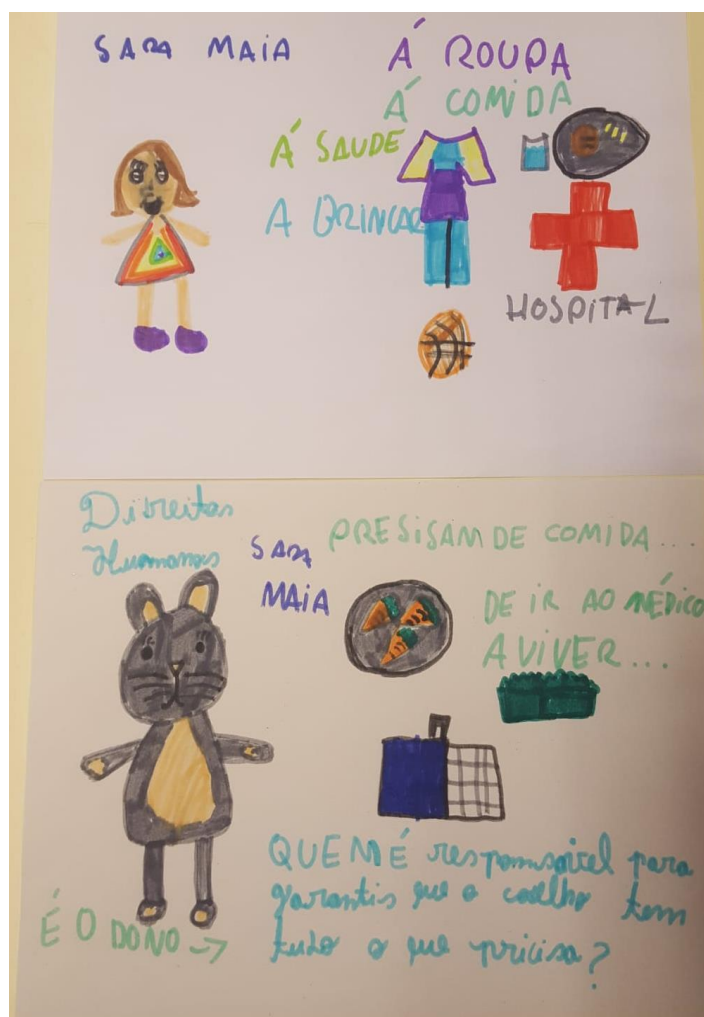 SARA MAIA
Á ROUPA
Á COMIDA
Á SAUDE
A BRINCAR
HOSPITAL
Direitos
Humanos
SARA
MAIA
PRESISAM DE COMIDA...
DE IR AO MÉDICO
A VIVER...
QUEM É responsavel para
garantis que o coelho tem
tudo o que pricisa?
É O DONO →